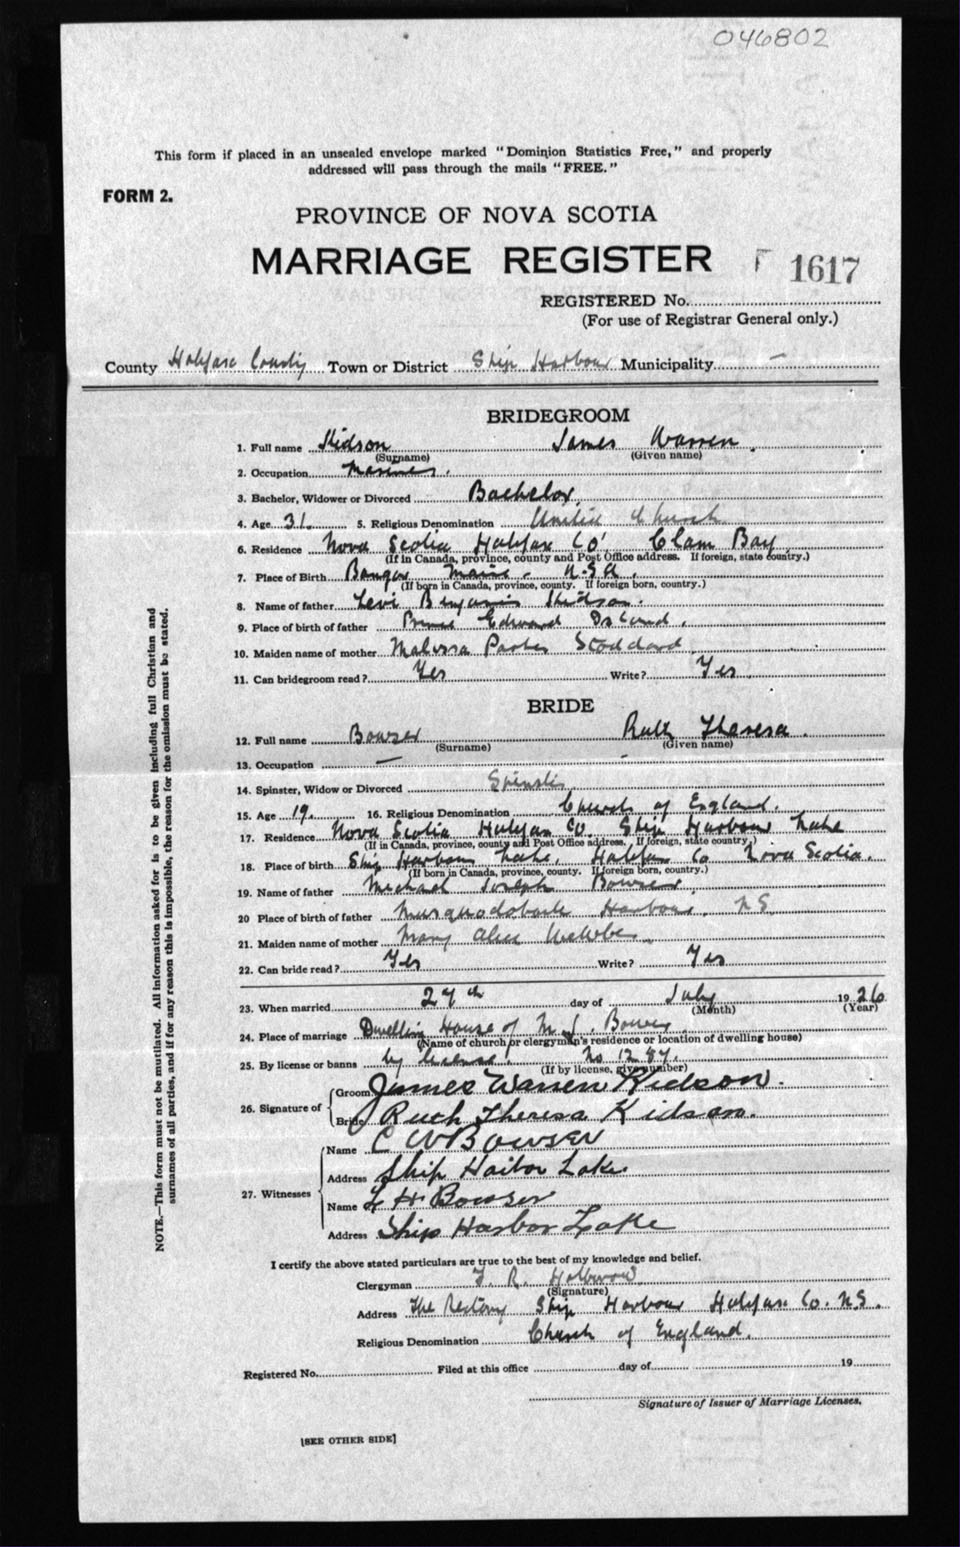 046802
This form if placed in an unsealed envelope marked "Dominion Statistics Free," and properly
addressed will pass through the mails "FREE."
FORM 2.
PROVINCE OF NOVA SCOTIA
MARRIAGE REGISTER 1617
REGISTERED No.
(For use of Registrar General only.)
County Halifax County Town or District Ship Harbour Municipality —
BRIDEGROOM
1. Full name Kidson James Warren
(Surname) (Given name)
2. Occupation Mariner.
3. Bachelor, Widower or Divorced Bachelor
4. Age 31. 5. Religious Denomination United Church
6. Residence Nova Scotia Halifax Co' Clam Bay
(If in Canada, province, county and Post Office address. If foreign, state country.)
7. Place of Birth Bangor Maine. U.S.A.
(If born in Canada, province, county. If foreign born, country.)
8. Name of father Levi Benjamin Kidson.
9. Place of birth of father Prince Edward Island.
10. Maiden name of mother Stoddard
11. Can bridegroom read? Yes Write? Yes
BRIDE
12. Full name Bowser Ruth Theresa.
(Surname) (Given name)
13. Occupation —
14. Spinster, Widow or Divorced Spinster
15. Age 19. 16. Religious Denomination Church of England.
17. Residence Nova Scotia Halifax Co. Ship Harbour Lake
(If in Canada, province, county and Post Office address. If foreign, state country.)
18. Place of birth Ship Harbour Lake, Halifax Co Nova Scotia.
(If born in Canada, province, county. If foreign born, country.)
19. Name of father Michael Joseph Bowser
20 Place of birth of father Musquodoboit Harbour. N.S.
21. Maiden name of mother Mary Alice Webber
22. Can bride read? Yes Write? Yes
23. When married 27th day of July 1926
(Month) (Year)
24. Place of marriage Dwelling House of M J. Bowser
(Name of church or clergyman's residence or location of dwelling house)
25. By license or banns by license. No 1287.
(If by license, give number)
26. Signature of Groom James Warren Kidson.
Bride Ruth Theresa Kidson.
27. Witnesses Name C W Bowser
Address Ship Harbor Lake
Name H Bowser
Address Ship Harbor Lake
I certify the above stated particulars are true to the best of my knowledge and belief.
Clergyman R.
(Signature)
Address The Rectory Ship Harbour Halifax Co. N.S.
Religious Denomination Church of England.
Registered No. Filed at this office day of 19
Signature of Issuer of Marriage Licenses.
[SEE OTHER SIDE]
NOTE.—This form must not be mutilated. All information asked for is to be given including full Christian and
surnames of all parties, and if for any reason this is impossible, the reason for the omission must be stated.